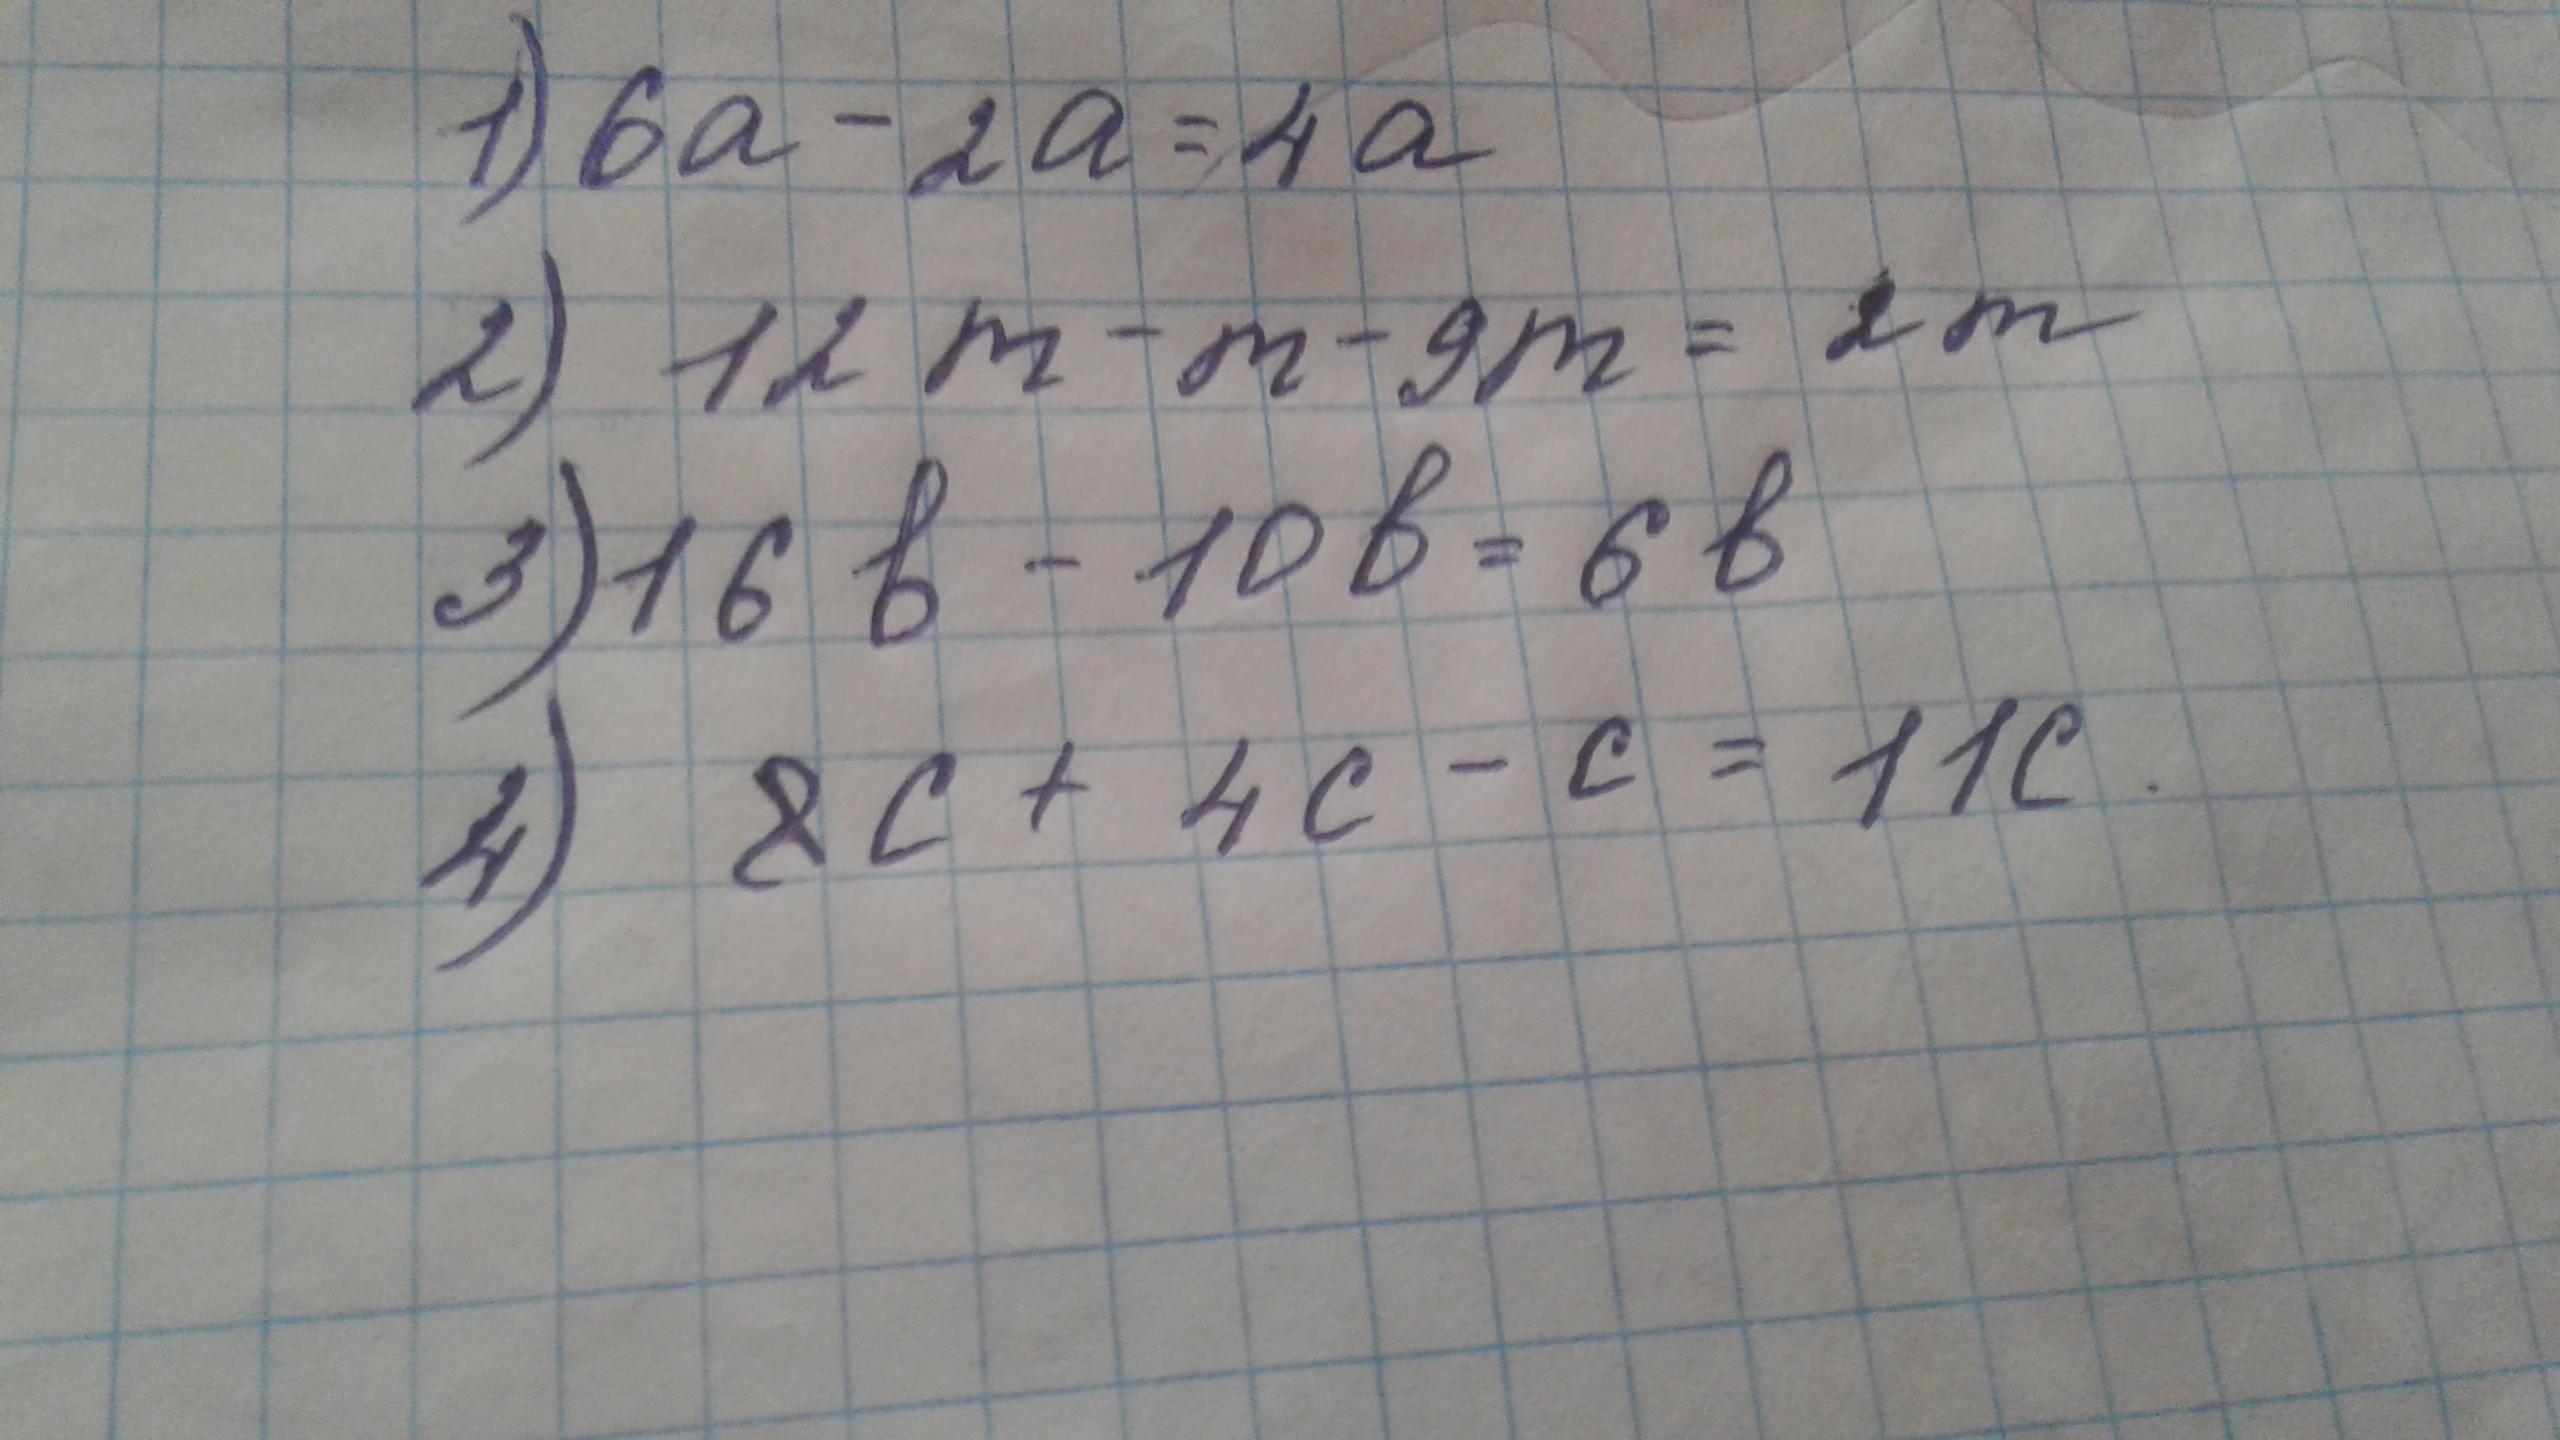 1) 6a - 2a = 4a
2) 12m - m - 9m = 2m
3) 16b - 10b = 6b
4) 8c + 4c - c = 11c.